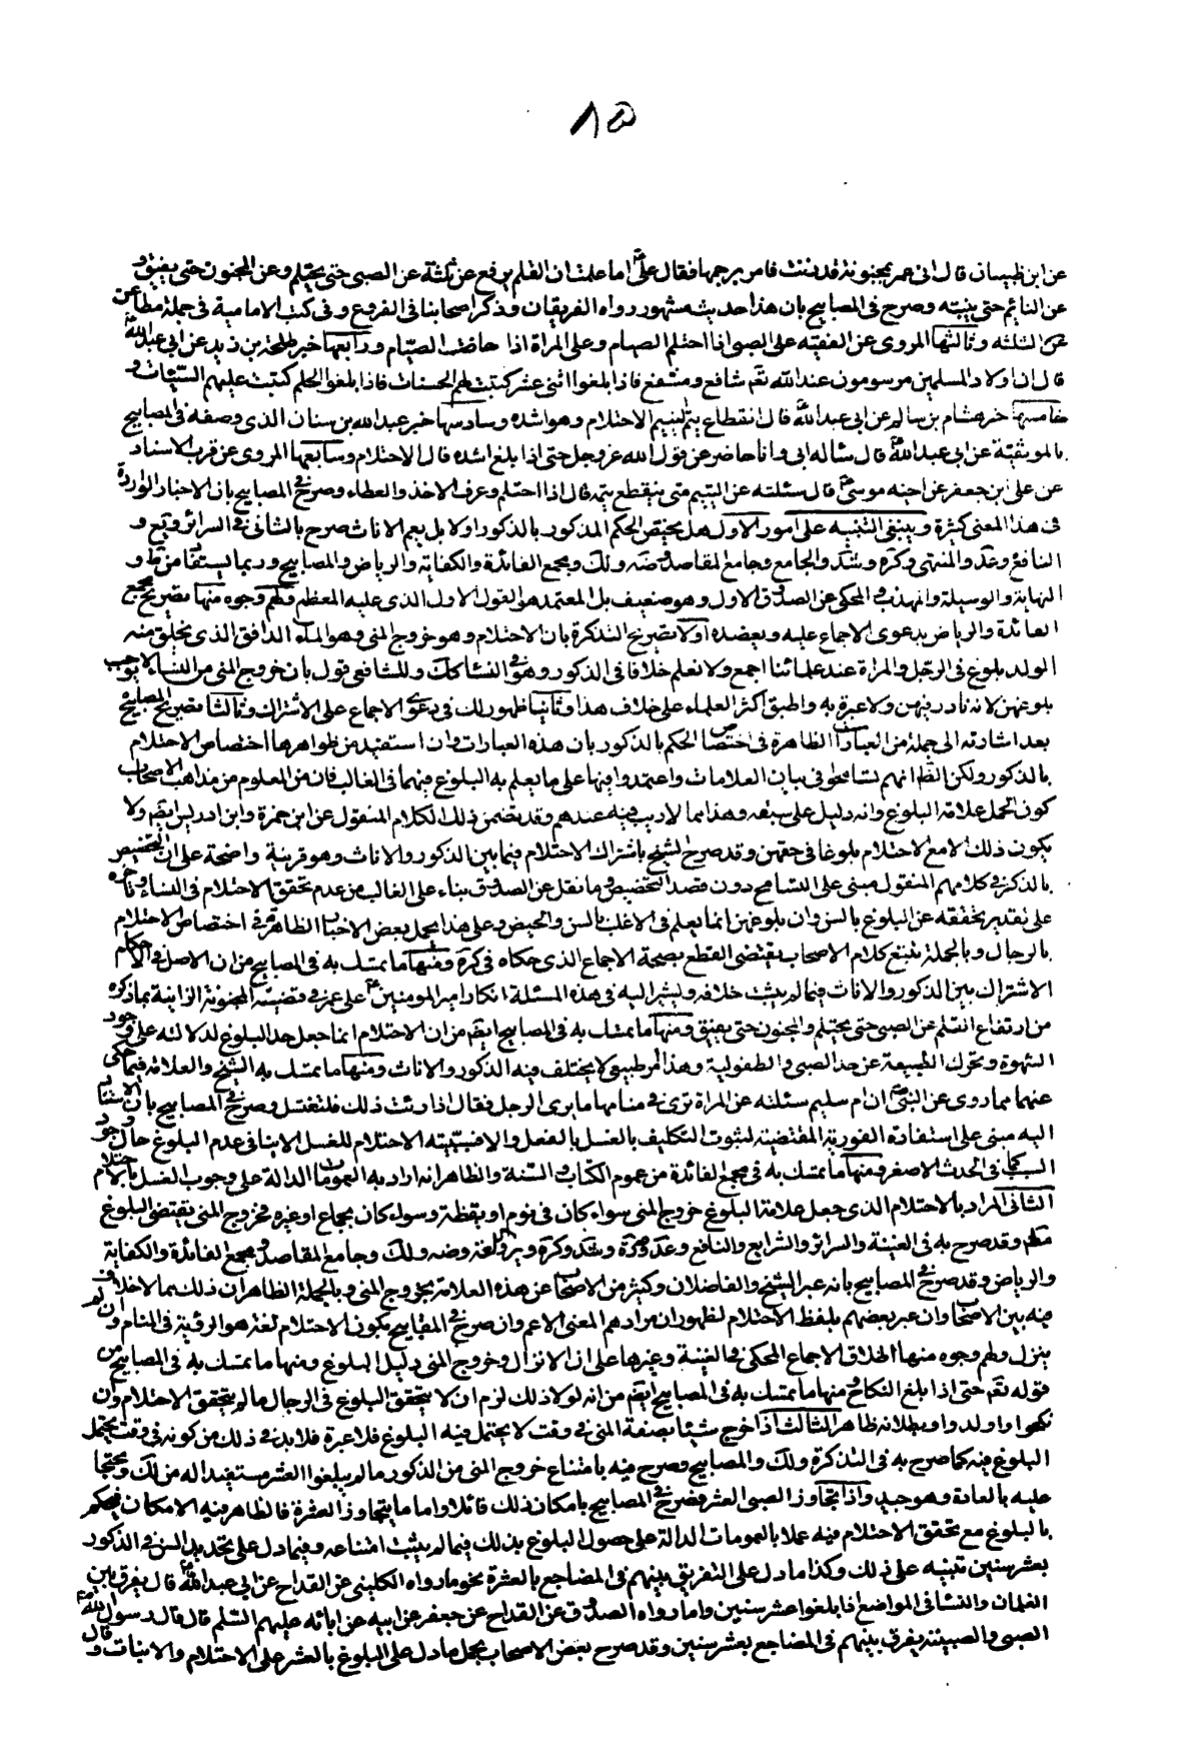 ٨٥
عن ابن ظبيان قال اتى عمر بمجنونة قد زنت فامر برجمها فقال على ع اما علمت ان القلم يرفع عن ثلثة عن الصبى حتى يحتلم وعن المجنون حتى يفيق و
عن النائم حتى ينتبه وصرح فى المصابيح بان هذا حديث مشهور رواه الفريقان وذكر اصحابنا فى الفروع وفى كتب الامامية فى جملة
عن الثلثه وثالثها المروى عن الفقيه على الصبى اذا احتلم الصيام وعلى المراة اذا حاضت الصيام ورابعها خبر طلحة بن زيد عن ابى عبد الله ع
قال ان اولاد المسلمين مرسومون عند الله تعم شافع ومشفع فاذا بلغوا اثنى عشر كتبت لهم الحسنات فاذا بلغوا الحلم كتبت عليهم السيئات و
خامسها خبر هشام بن سالم عن ابى عبد الله ع قال انقطاع يتم اليتيم الاحتلام وهو اشده وسادسها خبر عبد الله بن سنان الذى وصفه فى المصابيح
بالموثقية عن ابى عبد الله ع قال سئاله ابى وانا حاضر عن قول الله عز وجل حتى اذا بلغ اشده قال الاحتلام وسابعها المروى عن قرب الاسناد
عن على بن جعفر عن اخيه موسى ع قال سئلته عن اليتيم متى ينقطع يتمه قال اذا احتلم وعرف الاخذ والعطاء وصرح فى المصابيح بان الاخبار الواردة
فى هذا المعنى كثيرة وينبغى التنبيه على امور الاول هل يختص الحكم المذكور بالذكور اولا بل يعم الاناث صرح بالثانى فى السرائر ويع و
النافع وعد والمنتهى وكره وشد والجامع وجامع المقاصد وضه ولك ومجمع الفائدة والكفاية والرياض والمصابيح وربما يستفا من ط و
النهاية والوسيلة والمهذب والمحكى عن الصدوق الاول وهو ضعيف بل المعتمد هو القول الاول الذى عليه المعظم ولهم وجوه منها تصريح مجمع
الفائدة والرياض بدعوى الاجماع عليه ويعضده اولا تصريح التذكرة بان الاحتلام وهو خروج المنى وهو الماء الدافق الذى يخلق منه
الولد بلوغ فى الرجل والمراة عند علمائنا اجمع ولا نعلم خلافا فى الذكور وهو فى النسا كك وللشافعى قول بان خروج المنى من النساء لا يوجب
بلوغهن لانه نادر فيهن ولا عبرة به واطبق اكثر العلماء على خلاف هذا وثانيا ظهور لك فى دعوى الاجماع على الاشتراك وثالثا تصريح المصابيح
بعد اشارته الى جملة من العبارات الظاهرة فى اختصاص الحكم بالذكور بان هذه العبارات وان استفيد من ظواهرها اختصاص الاحتلام
بالذكور ولكن الظ انهم تسامحوا فى بيان العلامات واعتمدوا فيها على ما يعلم به البلوغ فيهما فى الغالب فان من المعلوم من مذاهب الاصحاب
كون الحمل علامة البلوغ وانه دليل على سبقه وهذا مما لا ريب فيه عندهم وقد تضمن ذلك الكلام المنقول عن ابن حمزة وابن ادريس ايضم ولا
يكون ذلك الا مع الاحتلام بلوغا فى حقهن وقد صرح الشيخ باشتراك الاحتلام فيما بين الذكور والاناث وهو قرينة واضحة على ان التخصيص
بالذكر فى كلامهم المنقول مبنى على التسامح دون قصد التخصيص وما نقل عن الصدوق بناء على الغالب من عدم تحقق الاحتلام فى النساء وتاخره
على تقدير تحققه عن البلوغ بالسن وان بلوغهن انما يعلم فى الاغلب بالسن والحيض وعلى هذا يحمل بعض الاخبا الظاهرة فى اختصاص الاحتلام
بالرجال وبالجملة تتبع كلام الاصحاب يقتضى القطع بصحة الاجماع الذى حكاه فى كره ومنها ما تمسك به فى المصابيح من ان الاصل فى الاحكام
الاشتراك بين الذكور والاناث فيما لم يثبت خلافه ويشير اليه فى هذه المسئلة انكار امير المومنين ع على عمر فى قضيته المجنونة الزانية بما ذكره
من ارتفاع القلم عن الصبى حتى يحتلم والمجنون حتى يفيق ومنها ما تمسك به فى المصابيح ايضم من ان الاحتلام انما جعل حد البلوغ لدلالته على وجود
الشهوة وتحرك الطبيعة عن حد الصبى والطفولية وهذا امر طبيعى لا يختلف فيه الذكور والاناث ومنها ما تمسك به الشيخ والعلامه فيما حكى
عنهما مما روى عن النبى ص ان ام سليم سئلته عن المراة ترى فى منامها ما يرى الرجل فقال اذا رئت ذلك فلتغتسل وصرح فى المصابيح بان الاستناد
اليه مبنى على استفادة الفورية المقتضية لثبوت التكليف بالغسل بالفعل والا فسببيته الاحتلام للغسل لا ينافى عدم البلوغ حال وجود
السبب كما فى الحدث الاصغر ومنها ما تمسك به فى مجمع الفائدة من عموم الكتاب والسنة والظاهر انه اراد به العمومات الدالة على وجوب الغسل بالاحتلام
الثانى المراد بالاحتلام الذى جعل علامة البلوغ خروج المنى سواء كان فى نوم او يقظة وسواء كان بجماع او غيره فخروج المنى يقتضى البلوغ
مطم وقد صرح به فى الغنية والسرائر والشرايع والنافع وعد وكره وشد وضه ولك وجامع المقاصد ومجمع الفائدة والكفاية
والرياض وقد صرح فى المصابيح بانه عبر الشيخ والفاضلان وكثير من الاصحاب عن هذه العلامة بخروج المنى وبالجملة الظاهر ان ذلك مما لا خلاف
فيه بين الاصحاب وان عبر بعضهم بلفظ الاحتلام لظهور ان مرادهم المعنى الاعم وان صرح فى المصابيح بكون الاحتلام لغة هو الرؤية فى المنام وان لم
ينزل ولهم وجوه منها اطلاق الاجماع المحكى فى الغنية وغيرها على ان الانزال وخروج المنى دليل البلوغ ومنها ما تمسك به فى المصابيح من
قوله تعم حتى اذا بلغ النكاح ومنها ما تمسك به فى المصابيح ايضم من انه لولا ذلك لزم ان لا يتحقق البلوغ فى الرجال ما لم يتحقق الاحتلام وان
نكحوا او اولدوا وبطلانه ظاهر الثالث اذا خرج شيئا بصفة المنى فى وقت لا يحتمل فيه البلوغ فلا عبرة فلا بد فى ذلك من كونه فى وقت يحتمل
البلوغ فيه كما صرح به فى التذكرة ولك والمصابيح وصرح فيه بامتناع خروج المنى من الذكور ما لم يبلغوا العشر مستفيدا له من لك ومحتجا
عليه بالعادة وهو جيد واذا تجاوز الصبى العشر فصرح فى المصابيح بامكان ذلك قائلا واما ما يتجاوز العشرة فالظاهر فيه الامكان فيحكم
بالبلوغ مع تحقق الاحتلام فيه عملا بالعمومات الدالة على حصول البلوغ بذلك فيما لم يثبت امتناعه وفيما دل على تحديد السن فى الذكور
بعشر سنين تنبيه على ذلك وكذا ما دل على التفريق بينهم فى المضاجع بالعشرة نحو ما رواه الكلينى عن القداح عن ابى عبد الله ع قال يفرق بين
الغلمان والنسا فى المواضع اذا بلغوا عشر سنين وما رواه الصدوق عن القداح عن جعفر عن ابيه عن ابائه عليهم السلم قال قال رسول الله ص
الصبى والصبيته يفرق بينهم فى المضاجع بعشر سنين وقد صرح بعض الاصحاب بحمل ما دل على البلوغ بالعشر على الاحتلام والانبات وقال